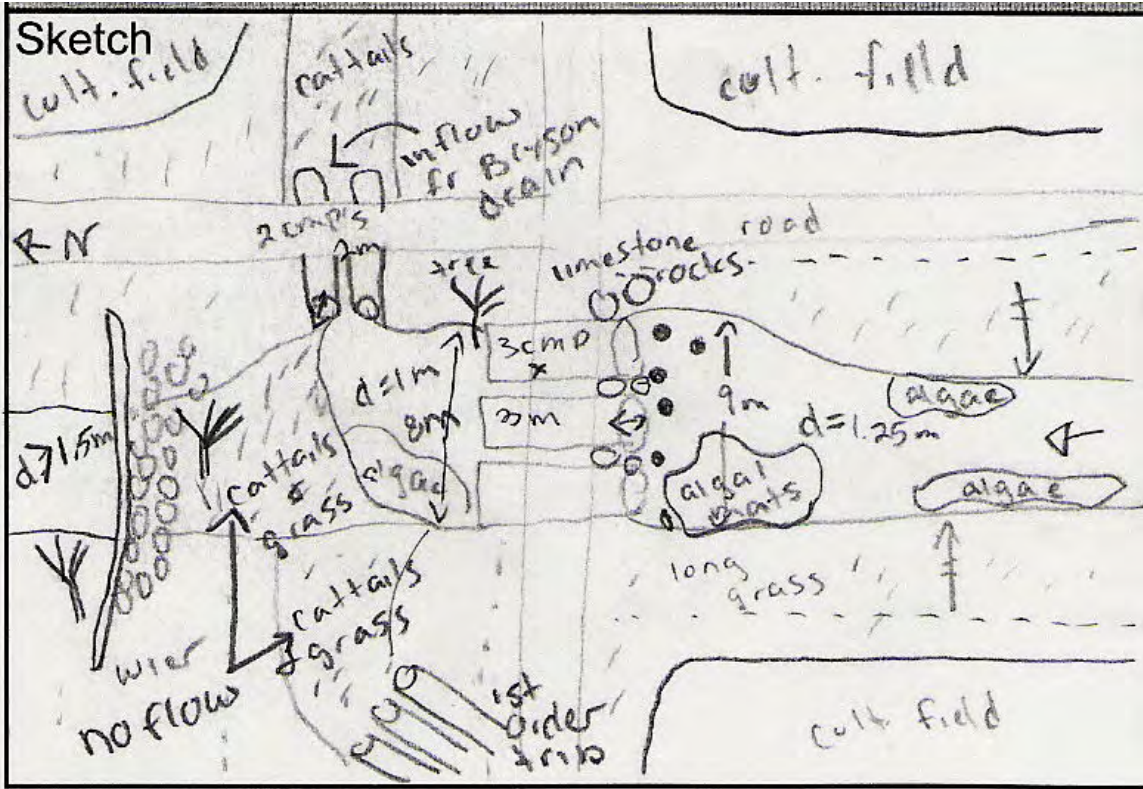 Sketch
cult. field
cattails
inflow
fr Bryson
drain
cult. field
N
2 cmp's
2m
tree
limestone
rocks
road
3 cmp
x
d=1m
8m
3m
9m
algae
d=1.25m
d>1.5m
algae
algal
mats
algae
cattails
&
grass
long
grass
cattails
& grass
wier
no flow
1st
order
trib
cult. field